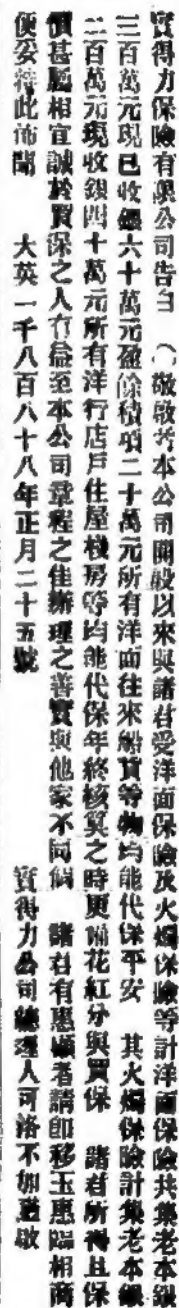 寳得力保險有限公司告白　〇敬啟者本公司開設以來與諸君受洋面保險及火燭保險等計洋面保險共集老本銀
三百萬元現已收銀六十萬元盈餘積項二十萬元所有洋面往來船貨等物均能代保平安　其火燭保險計集老本銀
二百萬元現收銀四十萬元所有洋行店戶住屋棧房等均能代保年終核算之時更備花紅分與買保　諸君所得且保
價甚屬相宜誠於買保之人有益至本公司章程之佳辦理之善實與他家不同倘　諸君有惠顧者請即移玉惠臨相商
便妥特此佈聞　大英一千八百八十八年正月二十五號　寳得力公司總理人可洛不加謹啟